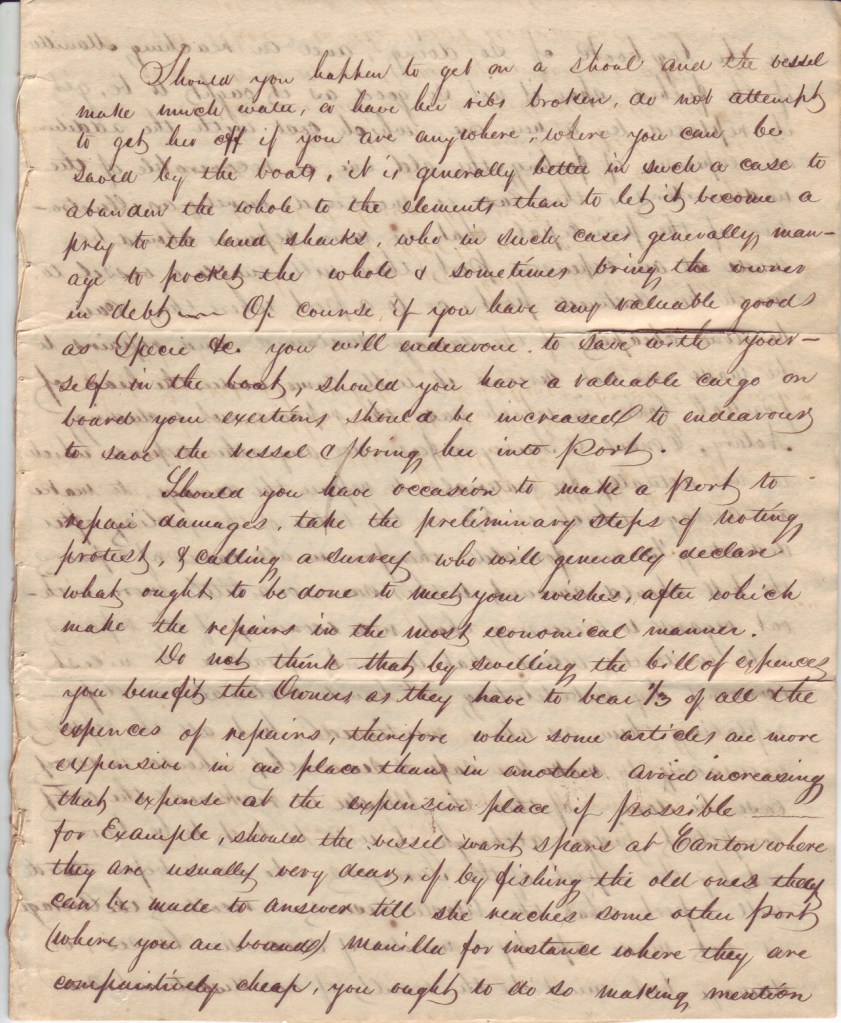 Should you happen to get on a shoal and the vessel
make much water, or have her ribs broken, do not attempt
to get her off if you are anywhere, where you can be
saved by the boats, it is generally better in such a case to
abandon the whole to the elements than to let it become a
prey to the land sharks, who in such cases generally man-
age to pocket the whole & sometimes bring the owner
in debt — Of course, if you have any valuable goods
as Specie &c. you will endeavour to save with your-
self in the boat, should you have a valuable cargo on
board your exertions should be increased to endeavour
to save the vessel & bring her into Port.
Should you have occasion to make a Port to
repair damages, take the preliminary steps of noting
protest, & calling a survey who will generally declare
what ought to be done to meet your wishes, after which
make the repairs in the most economical manner.
Do not think that by swelling the bill of expences
you benefit the Owners as they have to bear 1/3 of all the
expences of repairs, therefore when some articles are more
expensive in one place than in another avoid increasing
that expense at the expensive place if possible —
for Example, should the vessel want spars at Canton where
they are usually very dear, if by fishing the old ones they
can be made to answer till she reaches some other Port
(where you are bound) Manilla for instance where they are
compairitively cheap, you ought to do so making mention